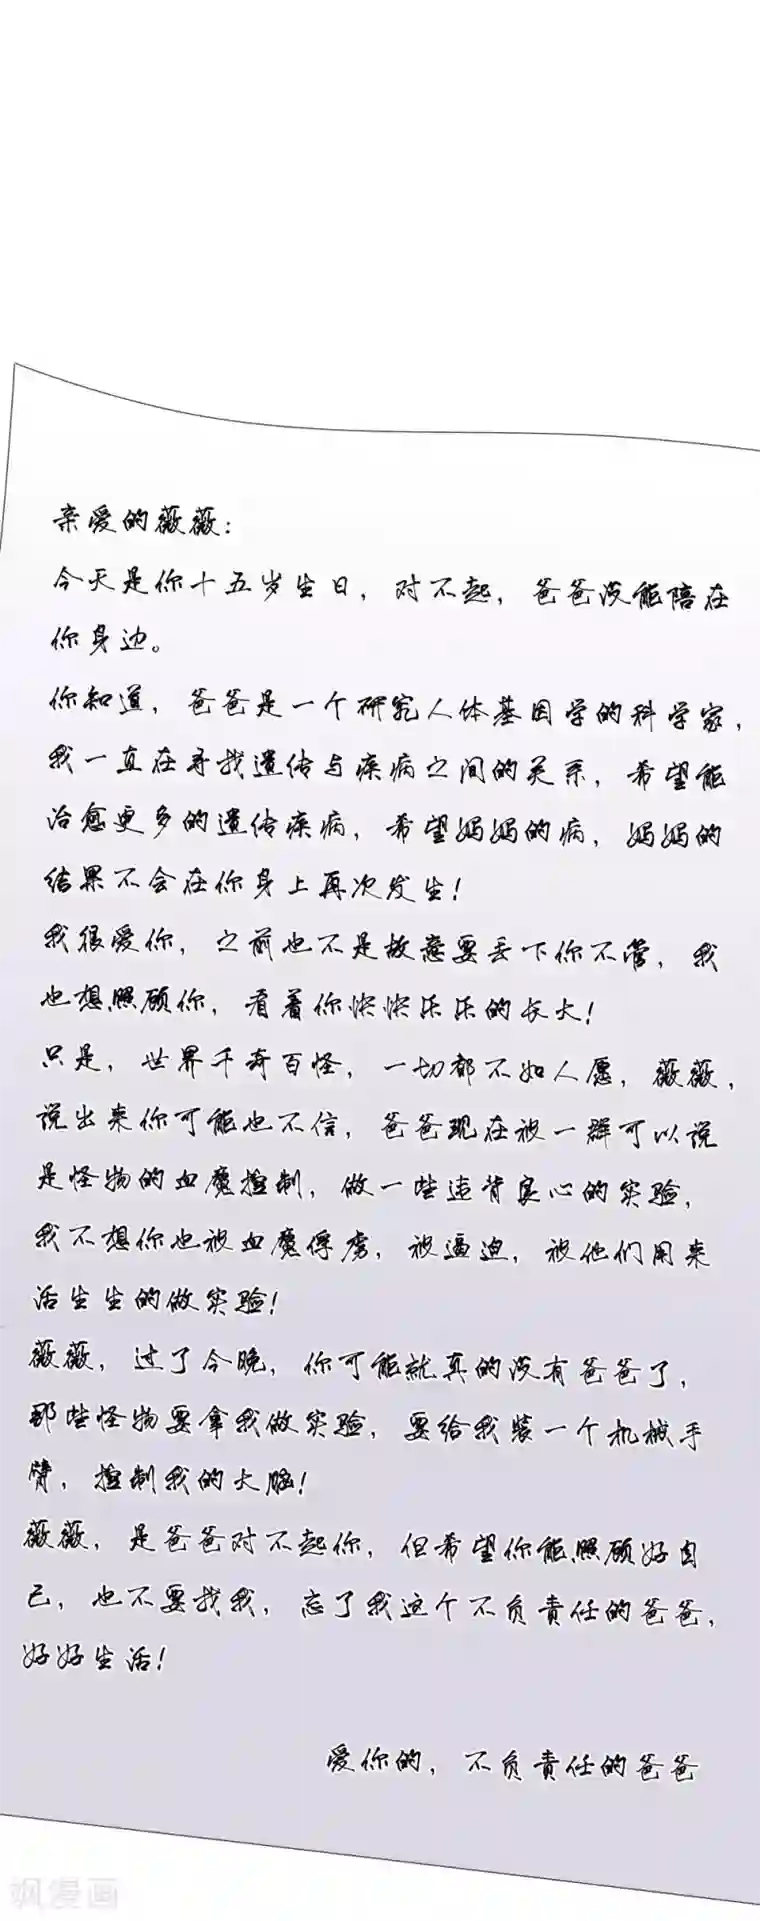 亲爱的薇薇：
今天是你十五岁生日，对不起，爸爸没能陪在
你身边。
你知道，爸爸是一个研究人体基因学的科学家，
我一直在寻找遗传与疾病之间的关系，希望能
治愈更多的遗传疾病，希望妈妈的病，妈妈的
结果不会在你身上再次发生！
我很爱你，之前也不是故意要丢下你不管，我
也想照顾你，看着你快快乐乐的长大！
只是，世界千奇百怪，一切都不如人愿，薇薇，
说出来你可能也不信，爸爸现在被一群可以说
是怪物的血魔控制，做一些违背良心的实验，
我不想你也被血魔俘虏，被逼迫，被他们用来
活生生的做实验！
薇薇，过了今晚，你可能就真的没有爸爸了，
那些怪物要拿我做实验，要给我装一个机械手
臂，控制我的大脑！
薇薇，是爸爸对不起你，但希望你能照顾好自
己，也不要找我，忘了我这个不负责任的爸爸，
好好生活！
爱你的，不负责任的爸爸
飒漫画